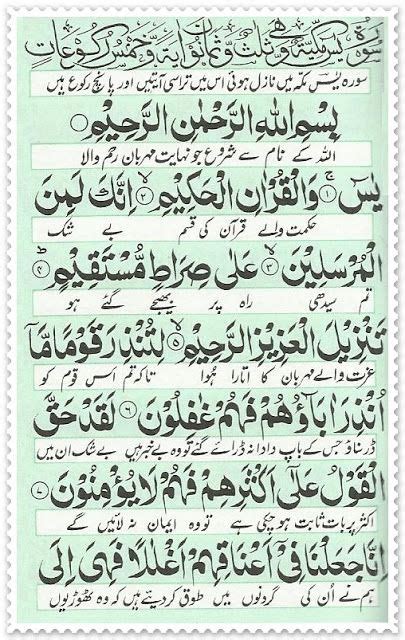 سورة يس مكية وهي ثلث وثمانون اية وخمس ركوعات
سورہ یٰسٓ مکہ میں نازل ہوئی اس میں تراسی آیتیں اور پانچ رکوع ہیں
بِسْمِ اللهِ الرَّحْمٰنِ الرَّحِيْمِ
اللہ کے نام سے شروع جو نہایت مہربان رحم والا
يٰسٓ ۚ﴿۱﴾ وَالْقُرْاٰنِ الْحَكِيْمِ ۙ﴿۲﴾ اِنَّكَ لَمِنَ
حکمت والے قرآن کی قسم بے شک
الْمُرْسَلِيْنَ ۙ﴿۳﴾ عَلٰى صِرَاطٍ مُّسْتَقِيْمٍ ؕ﴿۴﴾
تم سیدھی راہ پر بھیجے گئے ہو
تَنْزِيْلَ الْعَزِيْزِ الرَّحِيْمِ ۙ﴿۵﴾ لِتُنْذِرَ قَوْمًا مَّاۤ
عزت والے مہربان کا اتارا ہوا تاکہ تم اس قوم کو
اُنْذِرَ اٰبَآؤُهُمْ فَهُمْ غٰفِلُوْنَ ﴿۶﴾ لَقَدْ حَقَّ
ڈر سناؤ جس کے باپ دادا نہ ڈرائے گئے تو وہ بے خبر ہیں بے شک ان میں
الْقَوْلُ عَلٰٓى اَكْثَرِهِمْ فَهُمْ لَا يُؤْمِنُوْنَ ﴿۷﴾
اکثر پر بات ثابت ہوچکی ہے تو وہ ایمان نہ لائیں گے
اِنَّا جَعَلْنَا فِىْٓ اَعْنَاقِهِمْ اَغْلٰلًا فَهِىَ اِلَى
ہم نے اُن کی گردنوں میں طوق کردیئے ہیں کہ وہ ٹھوڑیوں